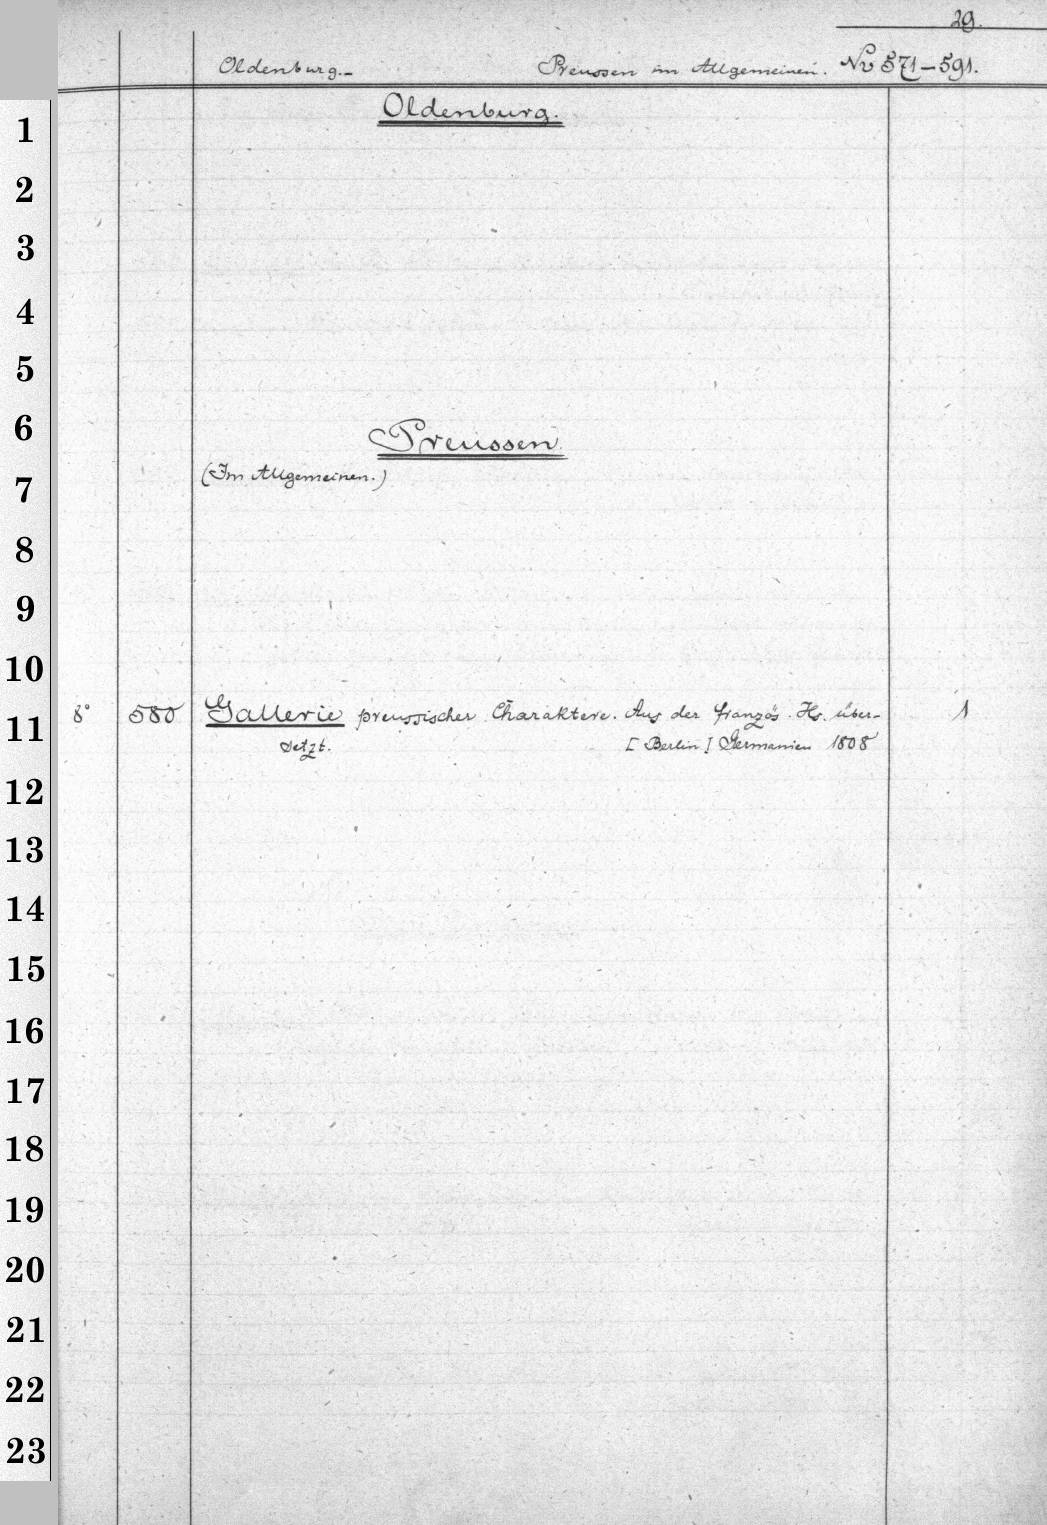 29.
Oldenburg.- Preussen im Allgemeinen. No 571-591.
1 Oldenburg.
2
3
4
5
6 Preussen
7 (Im Allgemeinen.)
8
9
10
11 8° 580 Gallerie preussischer Charaktere. Aus der französ. Hs. über- 1
setzt. [Berlin] Germanien 1808
12
13
14
15
16
17
18
19
20
21
22
23